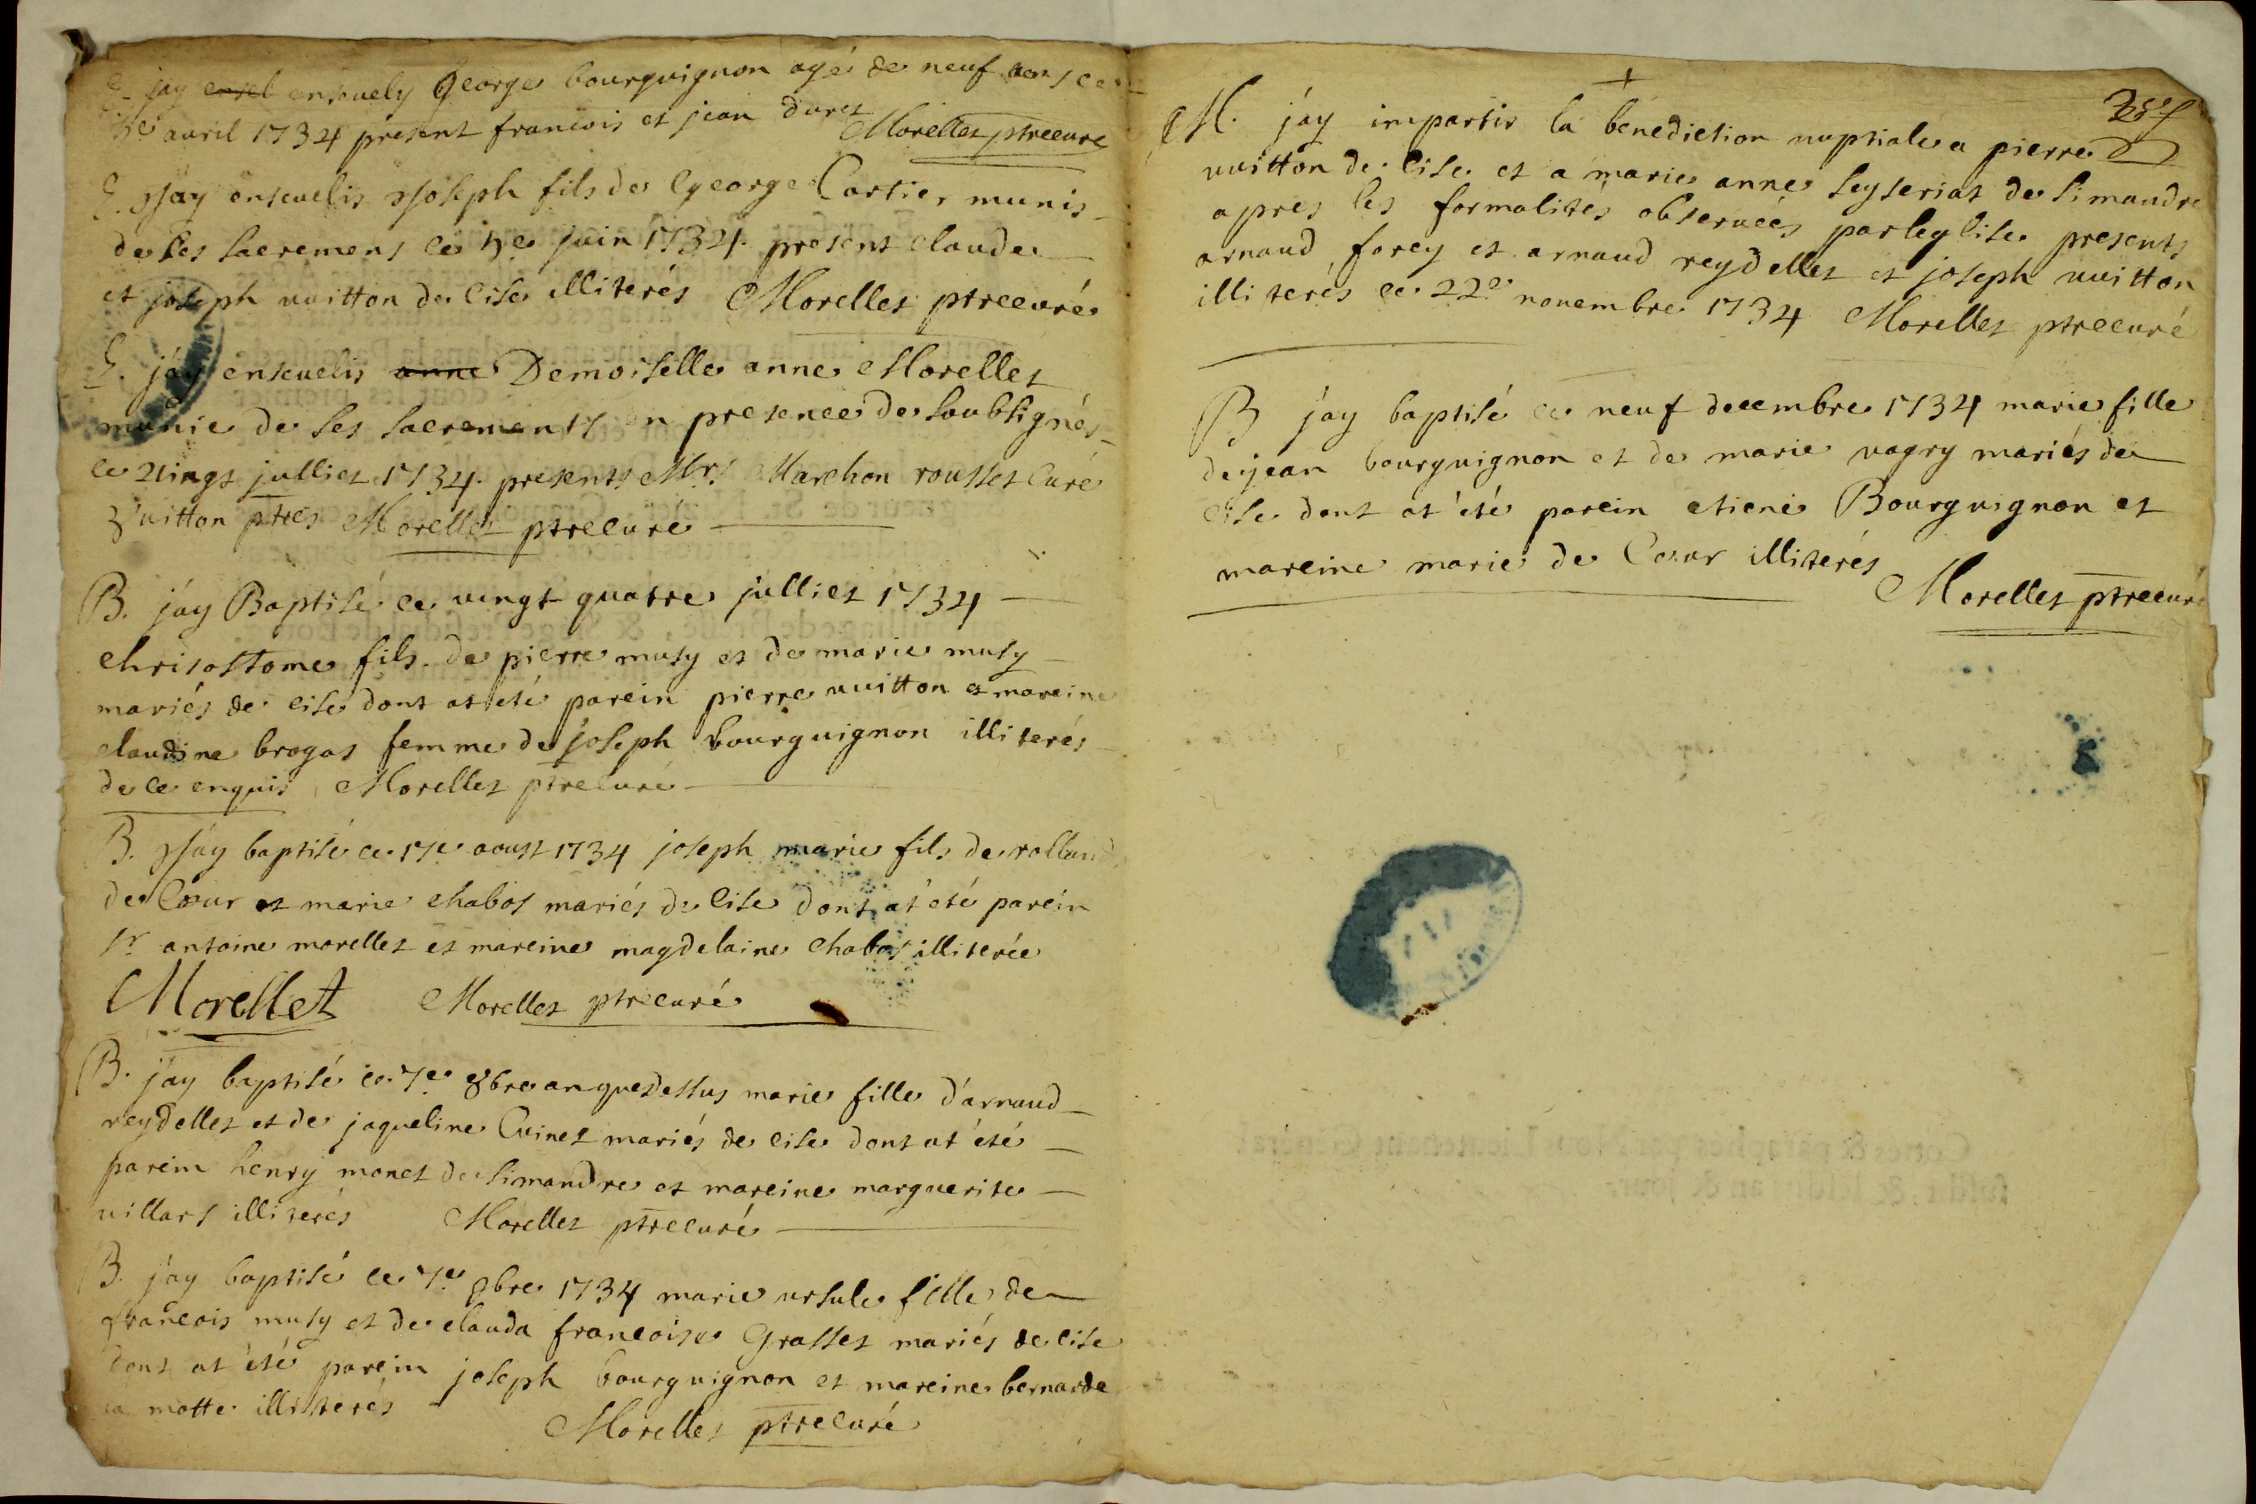 E. jay ensel ensevely george bourguignon agé de neuf ans ce
avril 1734 present francois et jean duret Morellet ptrecuré
E. Jjay ensevelis Jjoseph fils de george Cartier munis
de ses sacremens ce 5e juin 1734. present claude
et joseph vuitton de cise illiterés Morellet ptrecuré
E. jáy ensevelis anne Demoiselle anne Morellet
munie de ses sacrements en presence des soubsignés
ce Vingt julliet 1734. presents Mrs. Marchon rousset Curé
& vuitton ptres Morellet ptrecuré
B. jáy Baptisé ce vingt quatre julliet 1734
chrisostome fils de pierre musy et de marie musy
mariés de cise dont at été parein pierre vuitton et mareine
claudine brogas femme de joseph bourguignon illiterés
de ce enquis Morellet ptrecuré
B. Jjáy baptisé ce 17e aoust 1734 joseph marie fils de rolland
de Cœur et marie chabot mariés de cise dont at été parein
sr antoine morellet et mareine magdelaine chabot illiterée
Morellet Morellet ptrecuré
B. jáy baptisé ce 7e 8bre an que dessus marie fille d'arnaud
reydellet et de jaqueline Cuinet mariés de cise dont at été
parein henry monet de simandre et mareine marguerite
villars illiterés Morellet ptrecuré
B. jáy baptisé ce 7e 9bre 1734 marie ursule fille de
francois musy et de clauda francoise Grasset mariés de cise
dont at été parein joseph bourguignon et mareine bernarde
la motte illiterés Morellet ptrecuré
M. jáy impartir la benediction nuptiale a pierre
vuitton de cise et a marie anne seyseriat de simandre
apres les formalités observées par leglise presents
arnaud forey et arnaud reydellet et joseph vuitton
illiterés ce 22e novembre 1734 Morellet ptrecuré
B jáy baptisé ce neuf decembre 1734 marie fille
de jean bourguignon et de marie vagry mariés de
cise dont at été parein etiene Bourguignon et
mareine marie de Cœur illiterés
Morellet ptrecuré